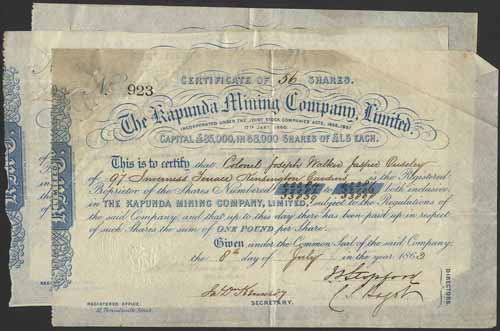 CERTIFICATE OF 56 SHARES.
No 923
The Kapunda Mining Company, Limited
INCORPORATED UNDER THE JOINT STOCK COMPANIES ACTS, 1856-1857
17TH JANY 1860.
CAPITAL £85,000, IN 85,000 SHARES OF £1 EACH.
This is to certify that Colonel Joseph Walker Jasper Ouseley
of 97 Inverness Terrace Kensington Gardens is the Registered
Proprietor of the Shares Numbered to both inclusive
IN THE KAPUNDA MINING COMPANY, LIMITED, Subject to the Regulations of
the said Company; and that up to this day there has been paid up in respect
of such Shares the sum of ONE POUND per Share.
Given under the Common Seal of the said Company,
the 8th day of July in the year 1863
DIRECTORS.
SECRETARY.
REGISTERED OFFICE.
Threadneedle Street